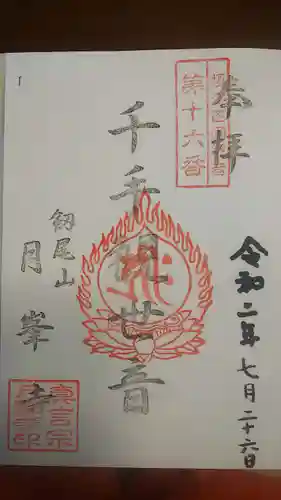 奉拝
第十六番
令和二年七月二十六日
千手観世音
釼尾山
月峯寺
真言宗